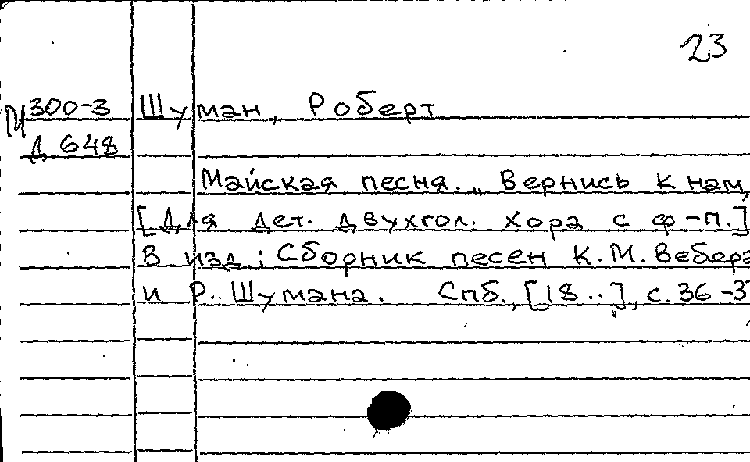 23
М 300-3 Шуман, Роберт
Д 648
Майская песня. „ Вернись к нам,
[Для дет. двухгол. хора с ф-п.]
В изд.: Сборник песен К.М. Вебера
и Р. Шумана. Спб., [18..], с. 36-3